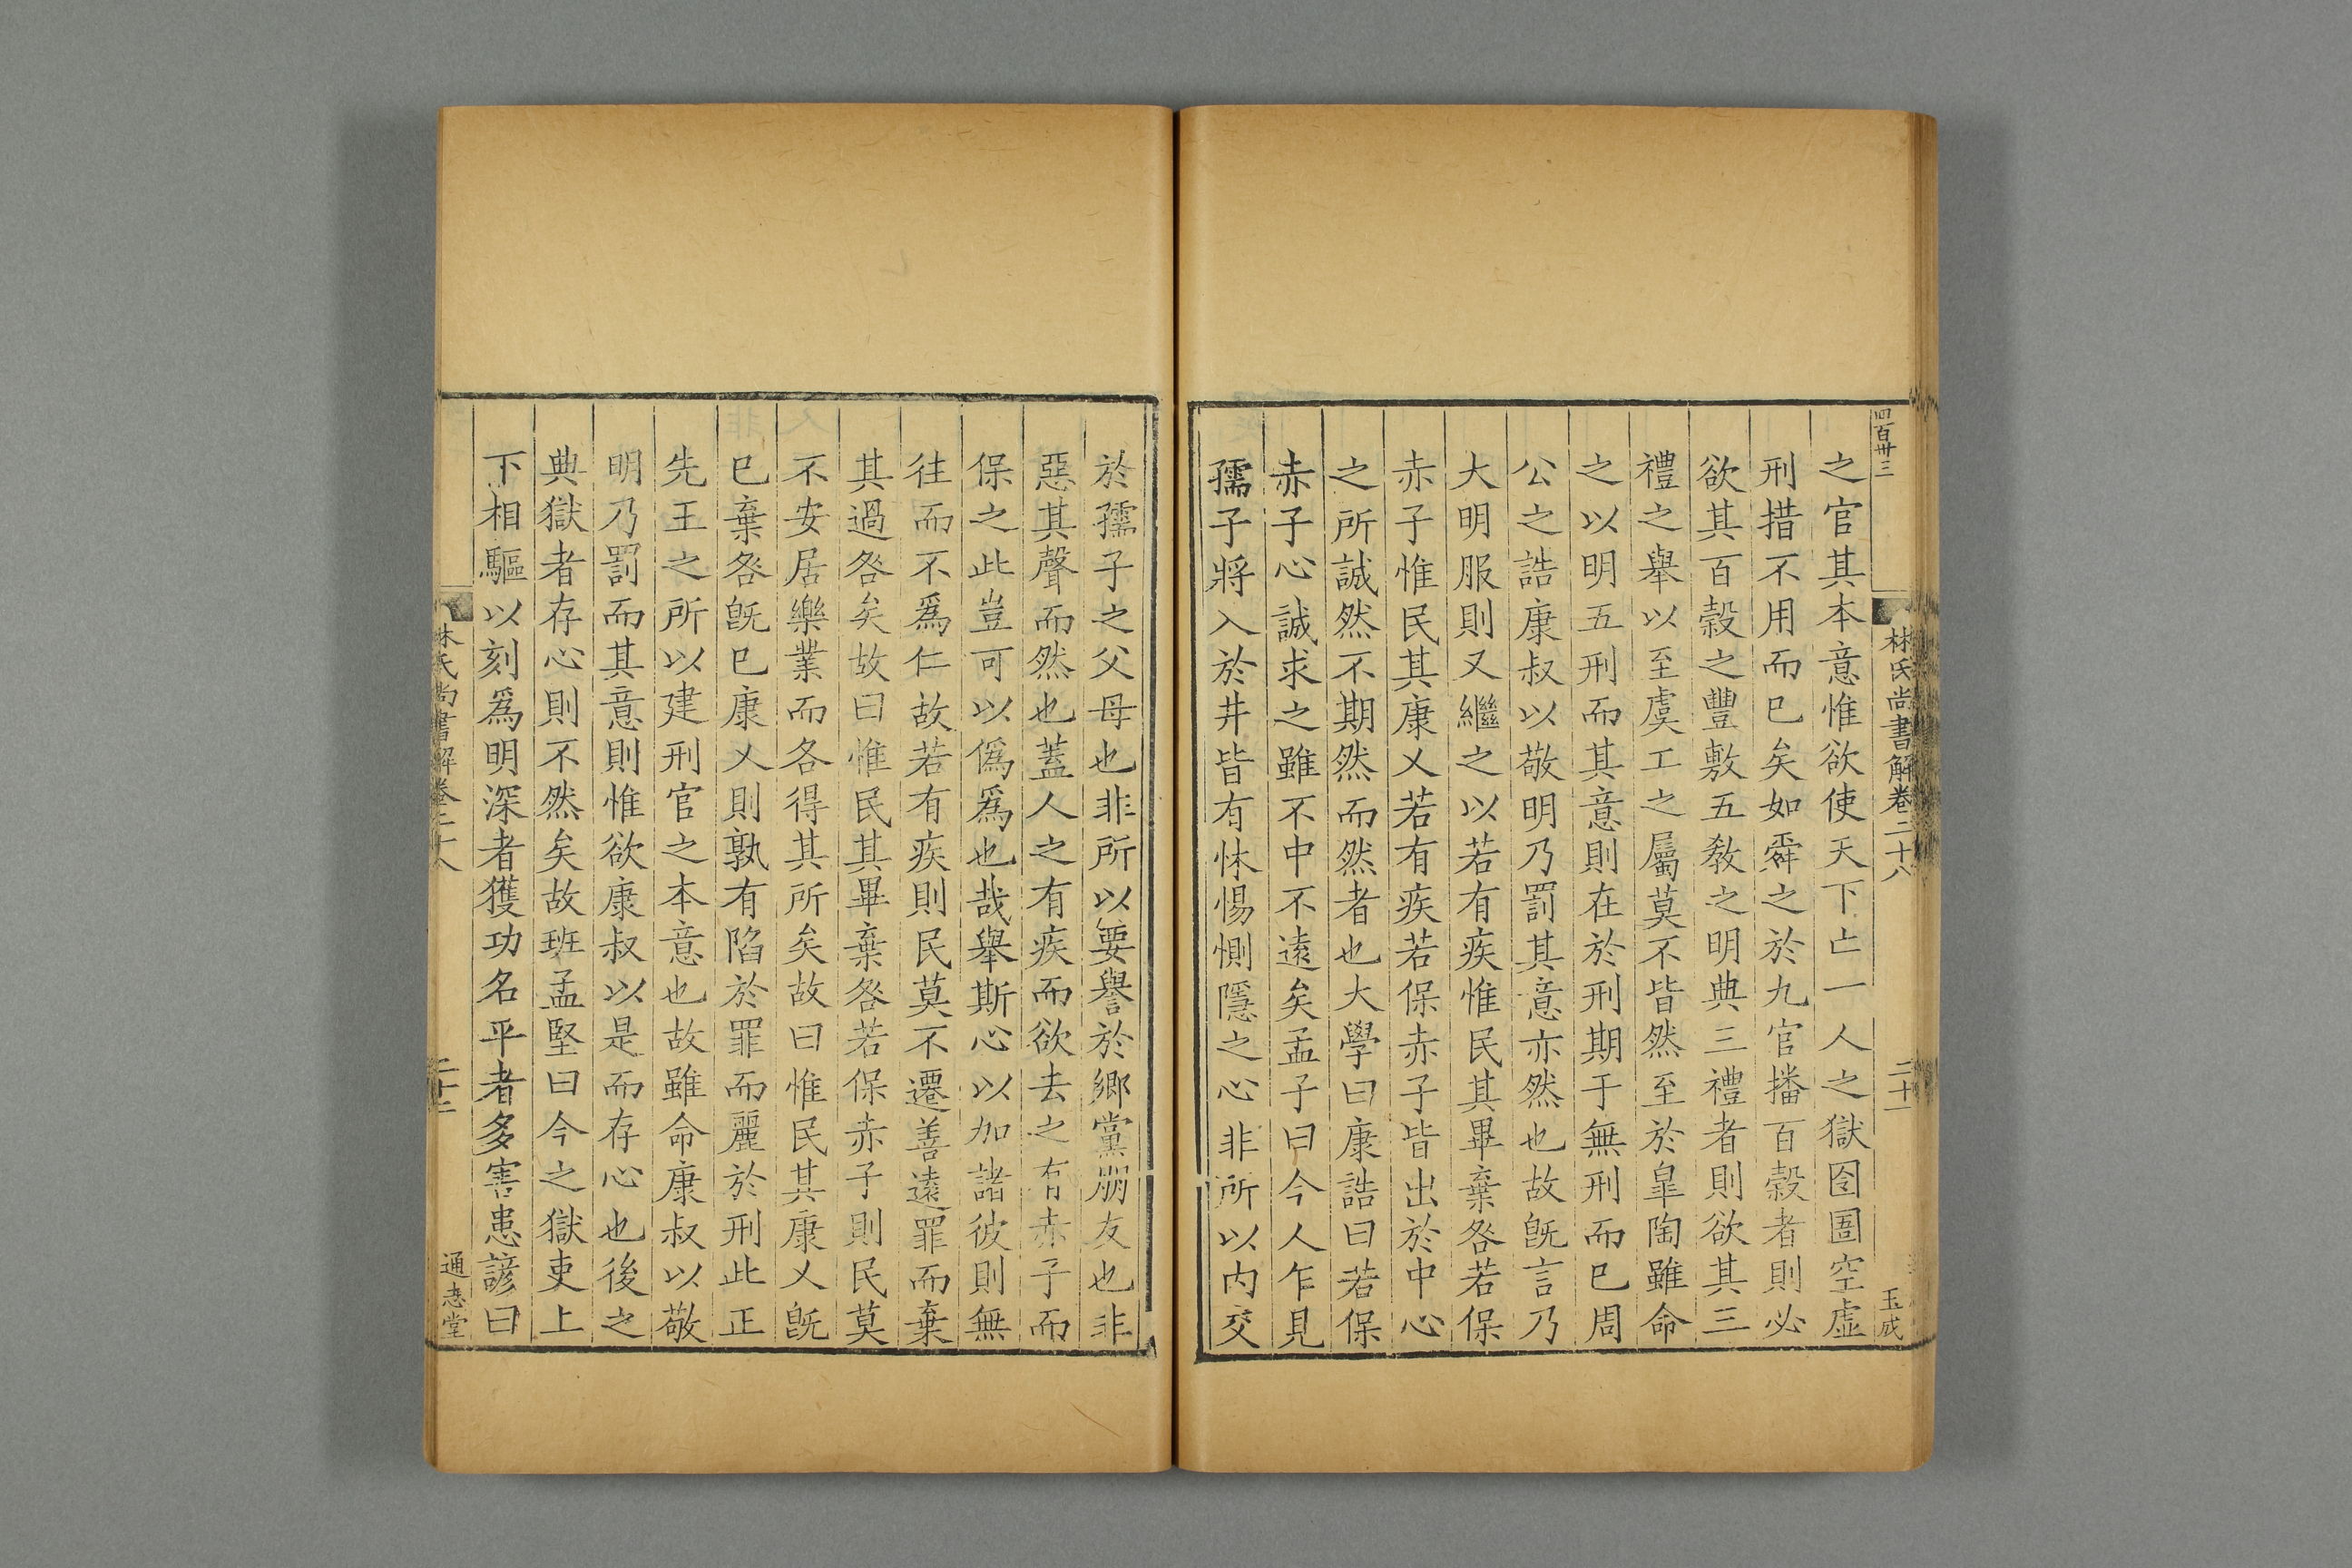 四百卅三
林氏尚書解卷二十八
二十一
玉成
之官其本意惟欲使天下亡一人之獄囹圄空虛
刑措不用而已矣如舜之於九官播百穀者則必
欲其百穀之豐敷五教之明典三禮者則欲其三
禮之舉以至虞工之屬莫不皆然至於皐陶雖命
之以明五刑而其意則在於刑期于無刑而已周
公之誥康叔以敬明乃罰其意亦然也故旣言乃
大明服則又繼之以若有疾惟民其畢棄咎若保
赤子惟民其康乂若有疾若保赤子皆出於中心
之所誠然不期然而然者也大學曰康誥曰若保
赤子心誠求之雖不中不遠矣孟子曰今人乍見
孺子將入於井皆有怵惕惻隱之心非所以內交
於孺子之父母也非所以要譽於鄉黨朋友也非
惡其聲而然也蓋人之有疾而欲去之有赤子而
保之此豈可以僞爲也哉舉斯心以加諸彼則無
往而不爲仁故若有疾則民莫不遷善遠罪而棄
其過咎矣故曰惟民其畢棄咎若保赤子則民莫
不安居樂業而各得其所矣故曰惟民其康乂旣
已棄咎旣已康乂則孰有陷於罪而麗於刑此正
先王之所以建刑官之本意也故雖命康叔以敬
明乃罰而其意則惟欲康叔以是而存心也後之
典獄者存心則不然矣故班孟堅曰今之獄吏上
下相驅以刻爲明深者獲功名平者多害患諺曰
林氏尚書解卷二十八
二十一
通志堂